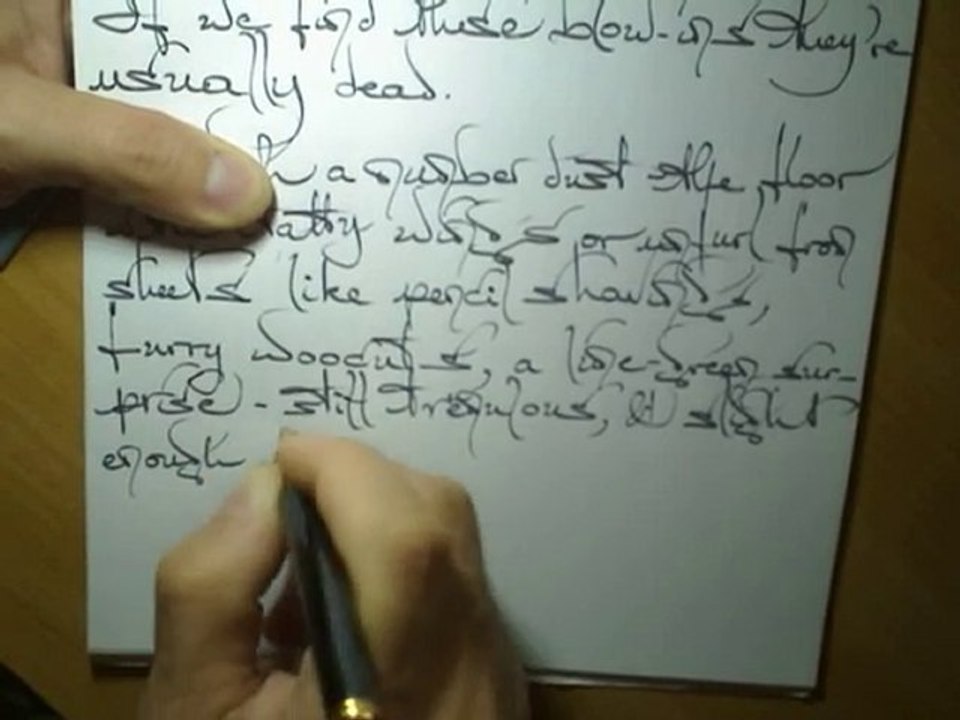 If we find these blow-ins they're
usually dead.
a number dust the floor
tatty wings or unfurl from
sheets like pencil shavings,
furry woodcuts, a live-green sur-
prise - still tremulous, & slight
enough